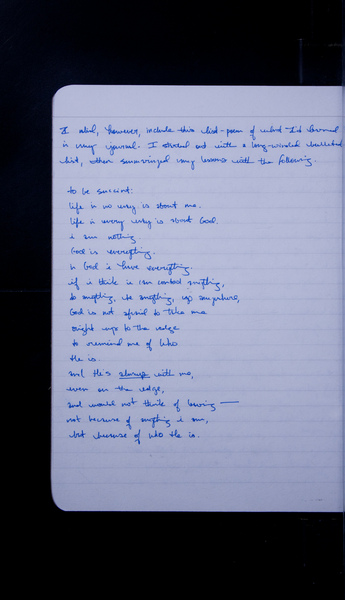 I did, however, include this list-poem of what I'd learned
in my journal. I started out with a long-winded bulleted
list, then summarized my lessons with the following.
to be succinct:
life in no way is about me.
life in every way is about God.
i am nothing
God is everything.
in God i have everything.
if i think i can control anything,
do anything, be anything, go anywhere,
God is not afraid to take me
right up to the edge
to remind me of who
He is.
and He's always with me,
even on the edge,
and would not think of leaving —
not because of anything i am,
but because of who He is.